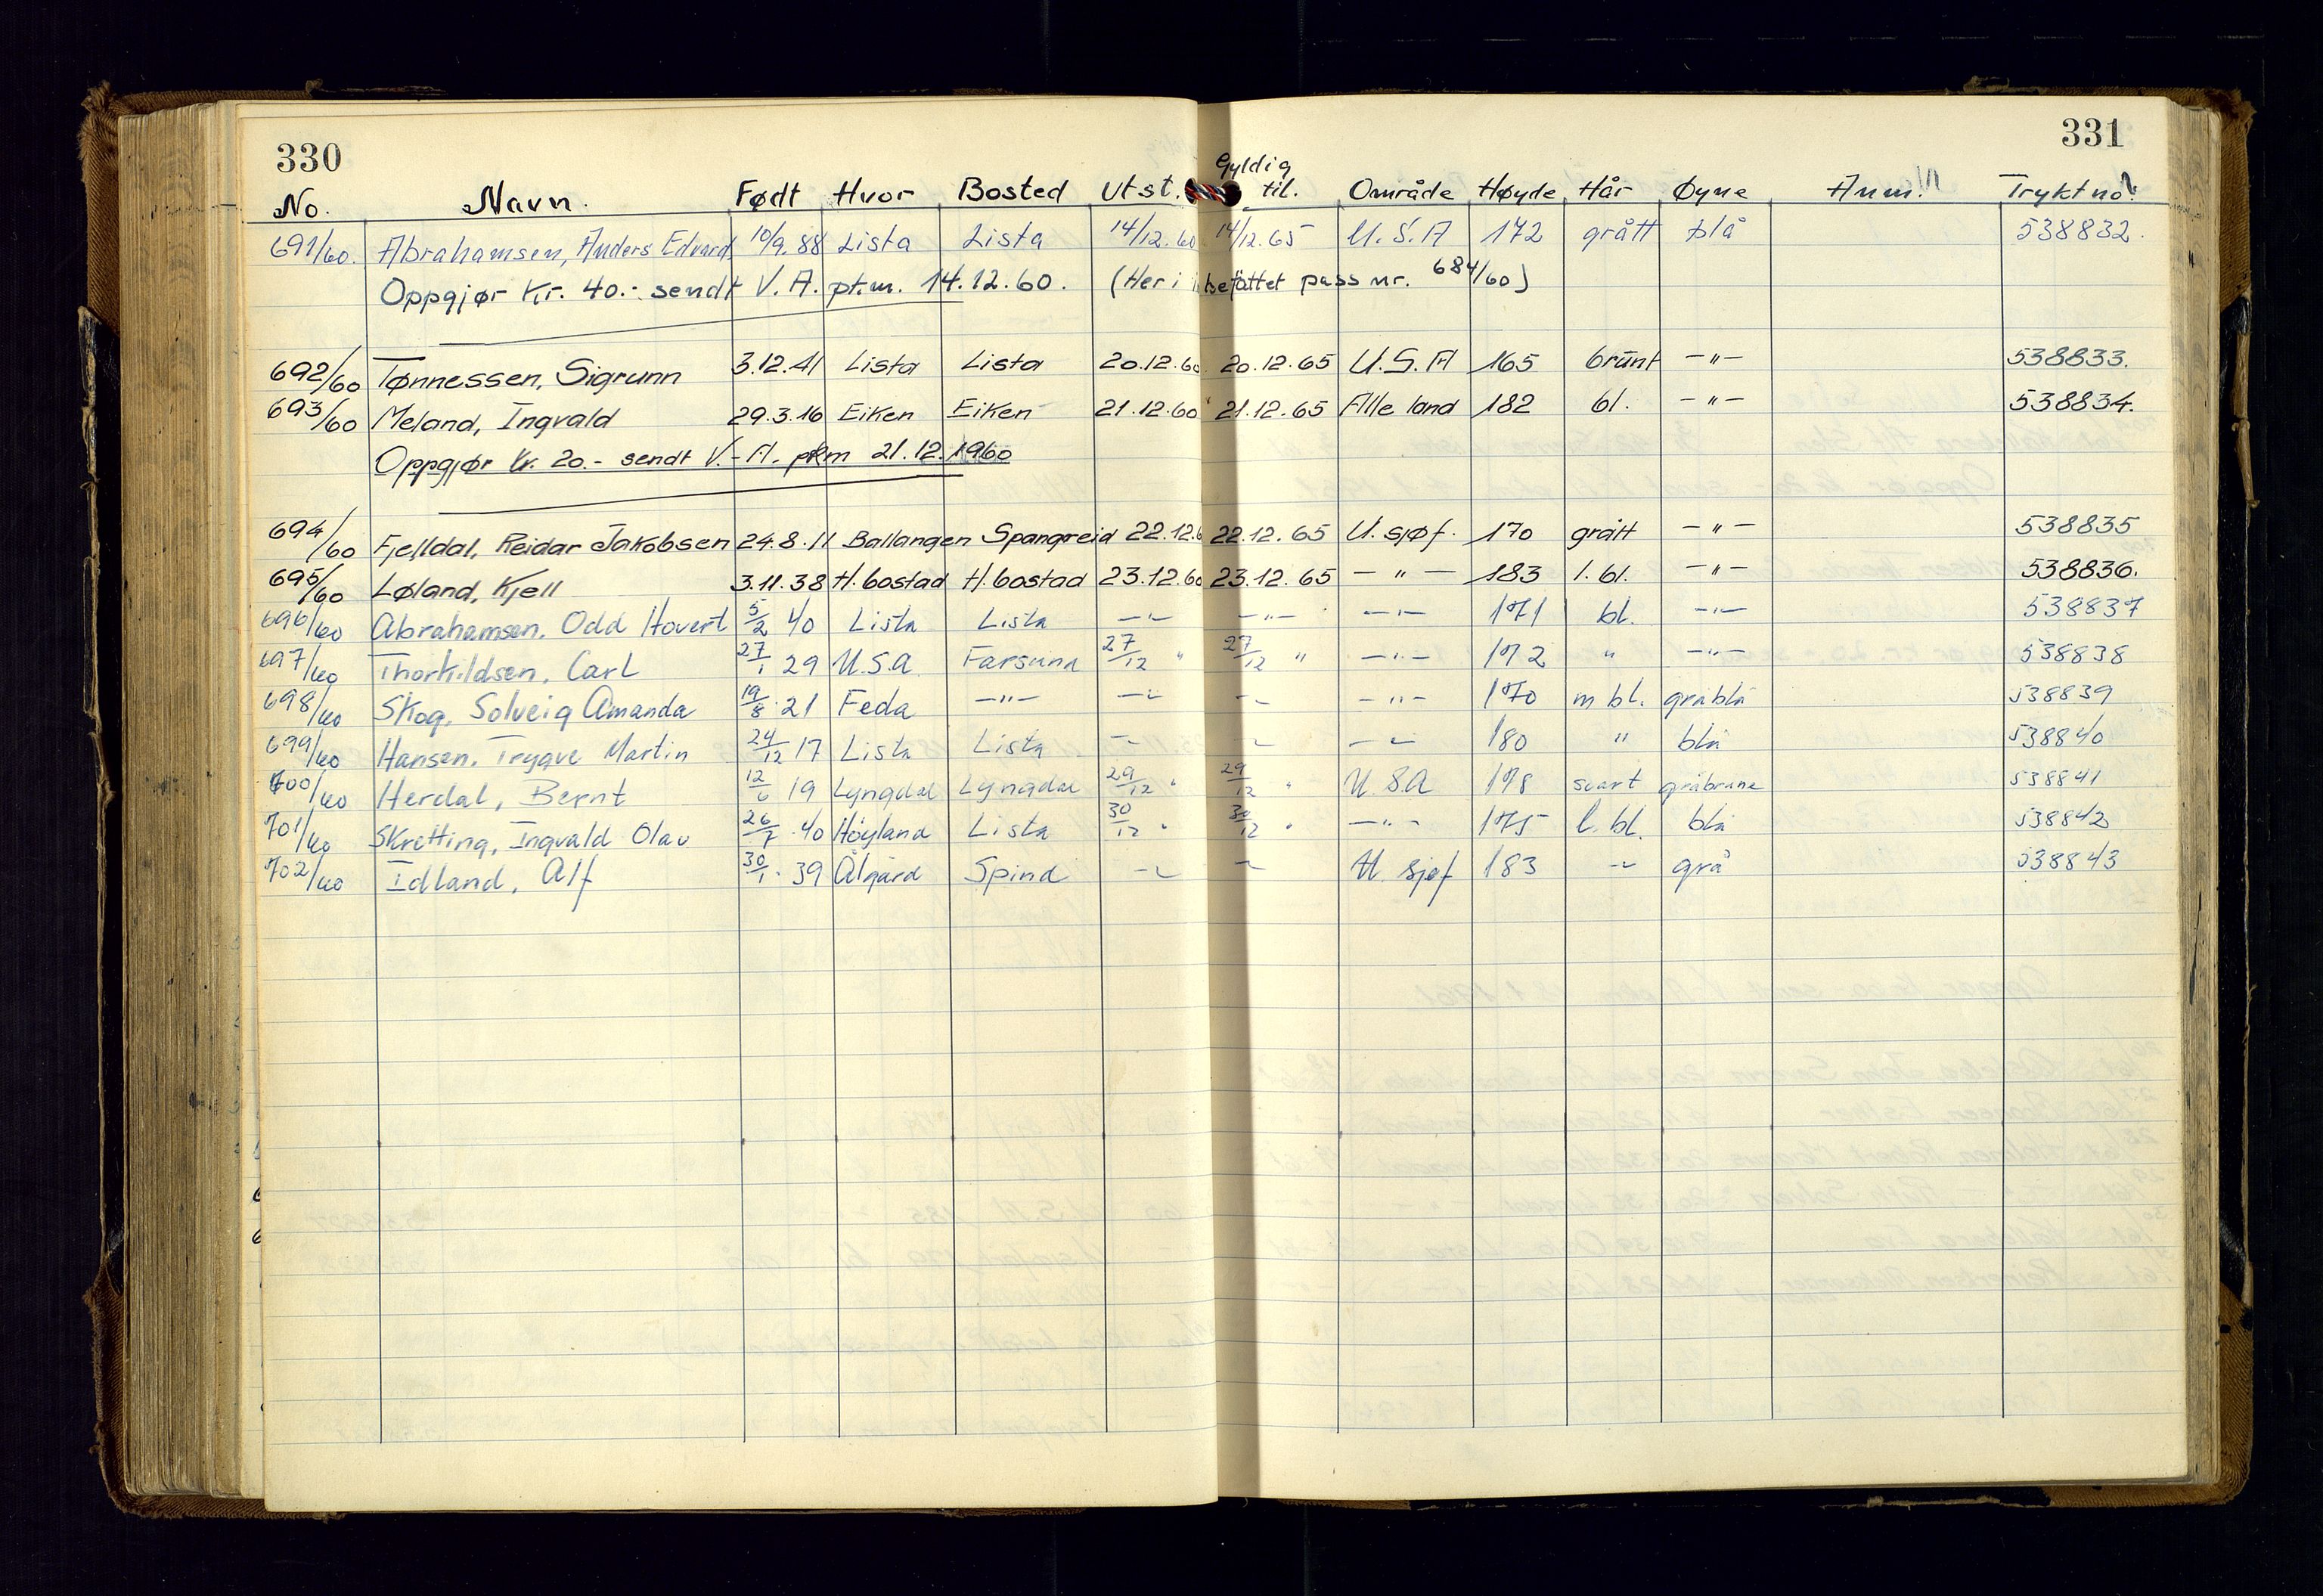 330
331
No. Navn. Født Hvor Bosted Utst. Gyldig til. Område Høyde Hår Øyne Anm. Tryktno.
691/60. Abrahamsen, Anders Edvard 10/9.88 Lista Lista 14/12.60 14/12.65 U.S.A 172 grått blå 538832.
Oppgjør Kr. 40.- sendt V.A. pt.m. 14.12.60. (Her i befattet pass nr. 684/60)
692/60 Tønnessen, Sigrunn 3.12.41 Lista Lista 20.12.60 20.12.65 U.S.A 165 brunt -"- 538833.
693/60 Meland, Ingvald 29.3.16 Eiken Eiken 21.12.60 21.12.65 Alle land 182 bl. -"- 538834.
Oppgjør kr. 20.- sendt V.-A. pkm 21.12.1960
694/60 Fjelldal, Reidar Jakobsen 24.8.11 Ballangen Spangreid 22.12.6 22.12.65 U. sjøf. 170 grått -"- 538835
695/60 Løland, Kjell 3.11.38 H.bostad H.bostad 23.12.60 23.12.65 -"- 183 l. bl. -"- 538836.
696/60 Abrahamsen, Odd Hovert 5/2 40 Lista Lista -"- -"- -"- 171 bl. -"- 538837
697/60 Thorkildsen, Carl 27/1 29 U.S.A. Farsund 27/12 " 27/12 " -"- 172 " -"- 538838
698/60 Skog, Solveig Amanda 19/8.21 Feda -"- -"- -"- -"- 170 m bl. gråblå 538839
699/60 Hansen, Trygve Martin 24/12 17 Lista Lista -"- -"- -"- 180 " blå 538840
700/60 Herdal, Bernt 12/6 19 Lyngdal Lyngdal 29/12 " 29/12 " U.S.A 178 svart gråbrune 538841
701/60 Skretting, Ingvald Olav 26/7.40 Høyland Lista 30/12 " 30/12 " -"- 175 l. bl. blå 538842
702/60 Idland, Alf 30/1. 39 Ålgård Spind -"- -"- U. sjøf 183 -"- grå 538843